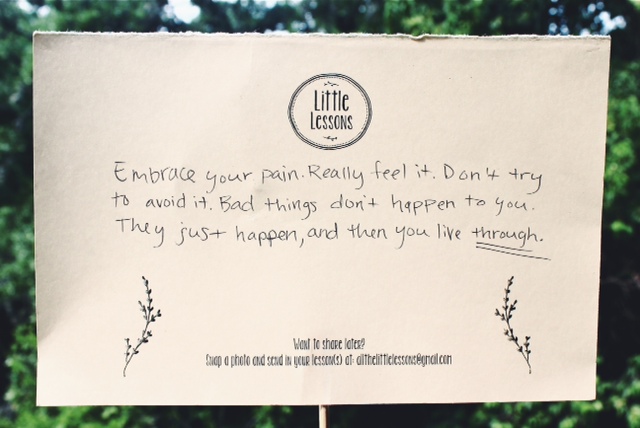 Little
Lessons
Embrace your pain. Really feel it. Don't try
to avoid it. Bad things don't happen to you.
They just happen, and then you live through.
Want to share later?
Snap a photo and send in your lesson(s) at: allthelittlelessons@gmail.com